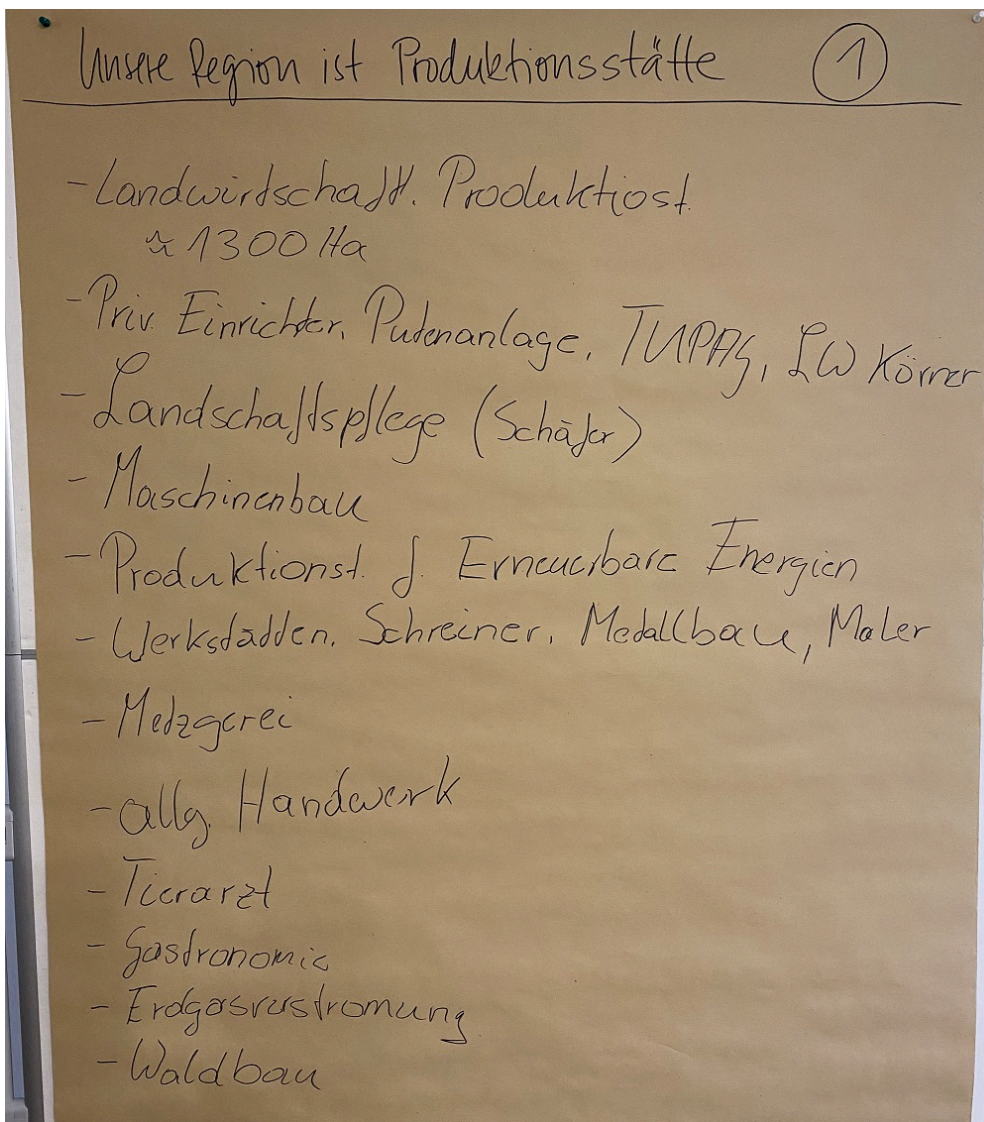 Unsere Region ist Produktionsstätte 1
- Landwirtschaftl. Produktiost.
≈ 1300 Ha
- Priv. Einrichter, Putenanlage, TUPAG, LW Körner
- Landschaftspflege (Schäfer)
- Maschinenbau
- Produktionst. f. Erneuerbare Energien
- Werkstätten, Schreiner, Metallbau, Maler
- Metzgerei
- allg. Handwerk
- Tierarzt
- Gastronomie
- Waldbau